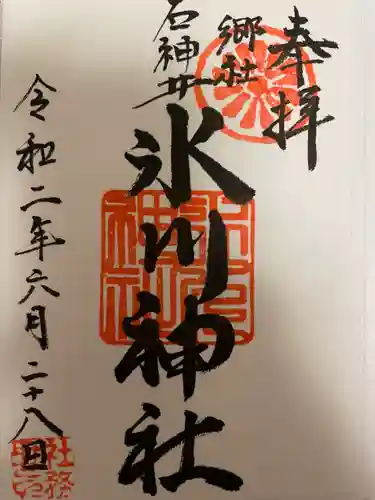 奉拝
郷社
石神井
氷川神社
令和二年六月二十八日
氷川神社
社務